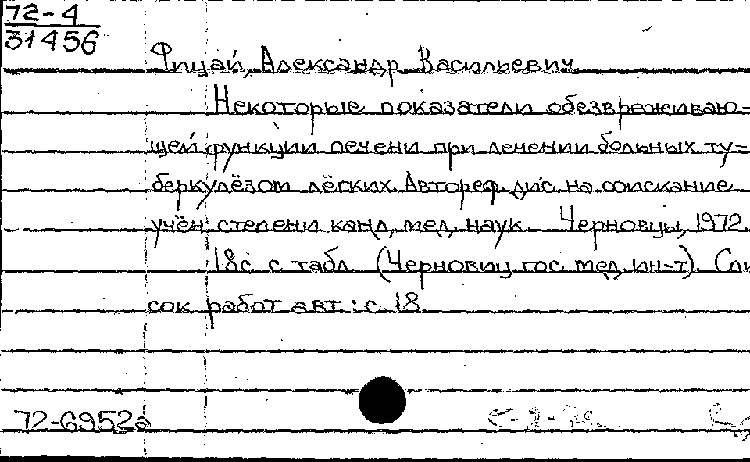 72-4
31456
Фицай, Александр Васильевич
Некоторые показатели обезвреживаю-
щей функции печени при лечении больных ту=
беркулёзом лёгких. Автореф. дис. на соискание
учён. степени канд. мед. наук. Черновцы, 1972.
18с. с табл. (Черновиц. гос. мед. ин-т). Спи
сок работ авт.: с. 18
72-6952а